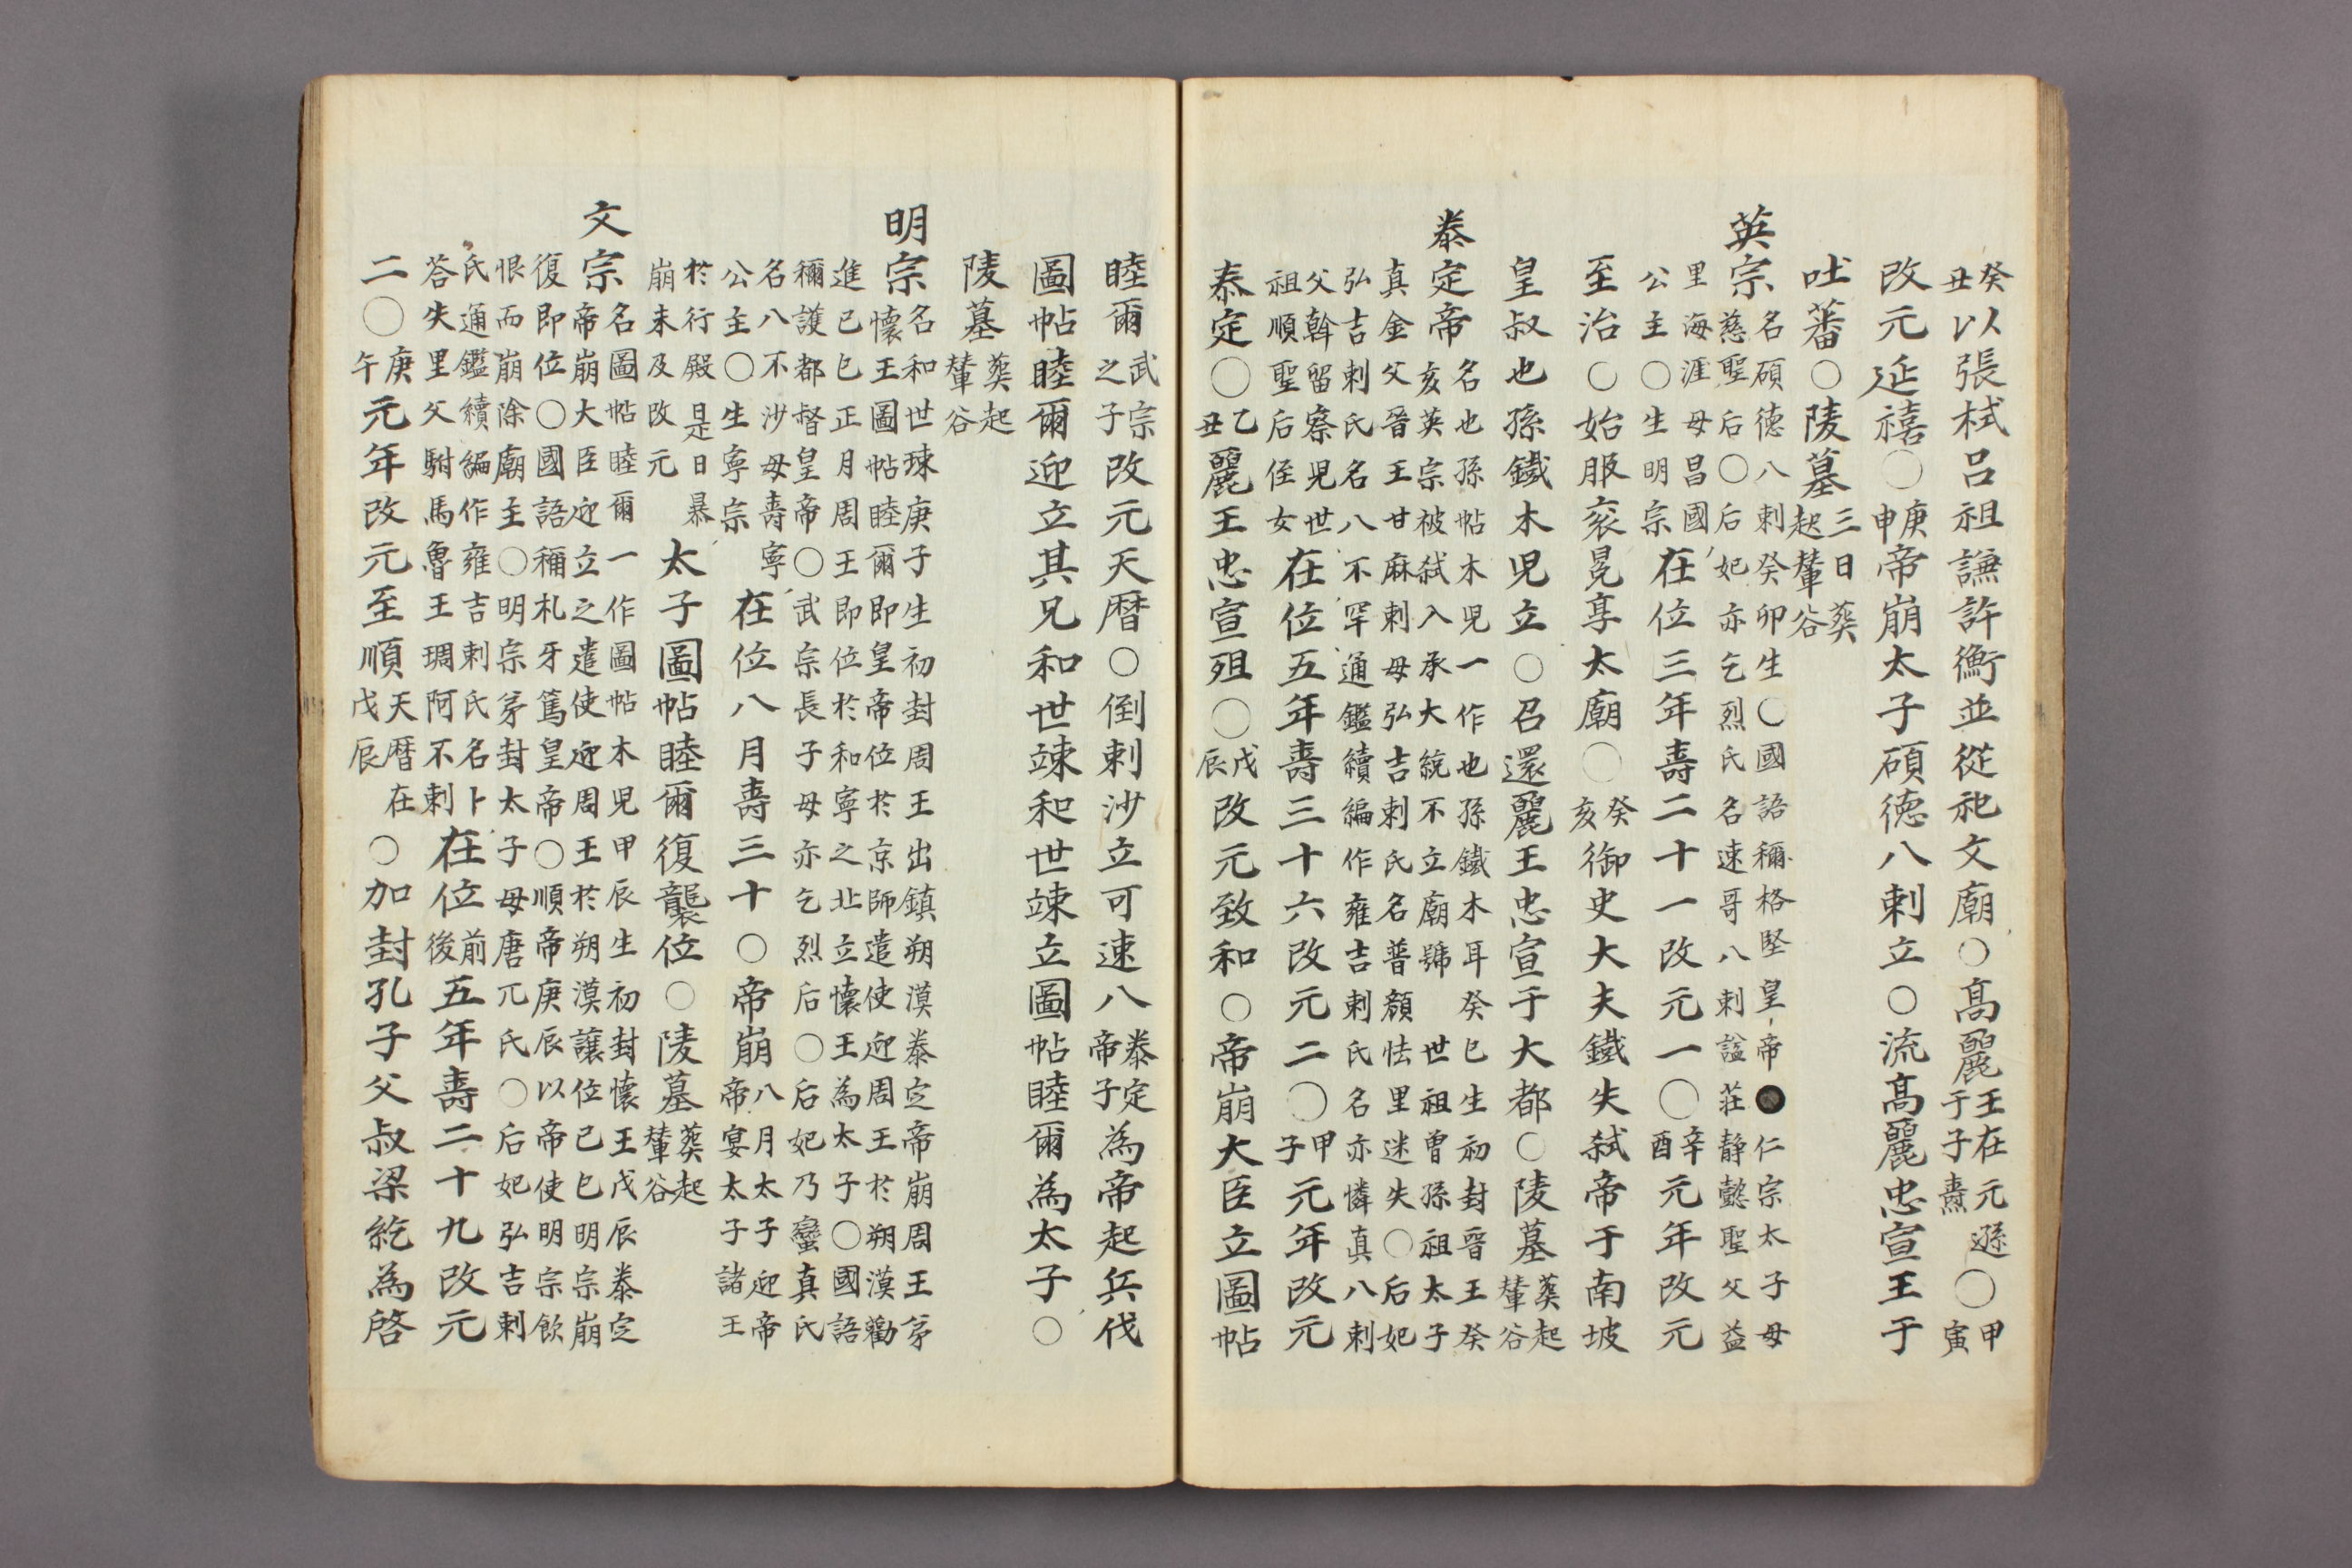 癸丑以張栻呂祖謙許衡並從祀文廟○高麗王在元遜于子燾○甲寅
改元延禧○庚申帝崩太子碩德八剌立○流高麗忠宣王于
吐蕃○陵墓三日葬起輦谷
英宗名碩德八剌癸卯生○國語穪格堅皇帝●仁宗太子母慈聖后○后妃亦乞烈氏名速哥八剌諡莊静懿聖父益
里海涯母昌國公主○生明宗在位三年壽二十一改元一○辛酉元年改元
至治○始服衮冕享太廟○癸亥御史大夫鐵失弑帝于南坡
皇叔也孫鐵木児立○召還麗王忠宣于大都○陵墓葬起輦谷
泰定帝名也孫帖木児一作也孫鐵木耳癸巳生初封晉王癸亥英宗被弑入承大統不立廟號世祖曾孫祖太子
真金父晉王甘麻剌母弘吉剌氏名普顔怯里迷失○后妃弘吉剌氏名八不罕通鑑續編作雍吉剌氏名亦憐真八剌
父斡留察児世祖順聖后侄女在位五年壽三十六改元二○甲子元年改元
泰定○乙丑麗王忠宣殂○戊辰改元致和○帝崩大臣立圖帖
睦爾武宗之子改元天曆○倒剌沙立可速八泰定帝子為帝起兵伐
圖帖睦爾迎立其兄和世㻋和世㻋立圖帖睦爾為太子○
陵墓葬起輦谷
明宗名和世㻋庚子生初封周王出鎮朔漠泰定帝崩周王弟懷王圖帖睦爾即皇帝位於京師遣使迎周王於朔漠勸
進己巳正月周王即位於和寧之北立懷王為太子○國語穪護都督皇帝○武宗長子母亦乞烈后○后妃乃蠻真氏
名八不沙母壽寧公主○生寧宗在位八月壽三十○帝崩八月太子迎帝帝宴太子諸王
於行殿是日暴崩未及改元太子圖帖睦爾復襲位○陵墓葬起輦谷
文宗名圖帖睦爾一作圖帖木児甲辰生初封懷王戊辰泰定帝崩大臣迎立之遣使迎周王於朔漠讓位己巳明宗崩
復即位○國語穪札牙篤皇帝○順帝庚辰以帝使明宗飲恨而崩除廟主○明宗弟封太子母唐兀氏○后妃弘吉剌
氏通鑑續編作雍吉剌氏名卜答失里父駙馬魯王琱阿不剌在位前後五年壽二十九改元
二○庚午元年改元至順天曆在戊辰○加封孔子父叔梁紇為啓